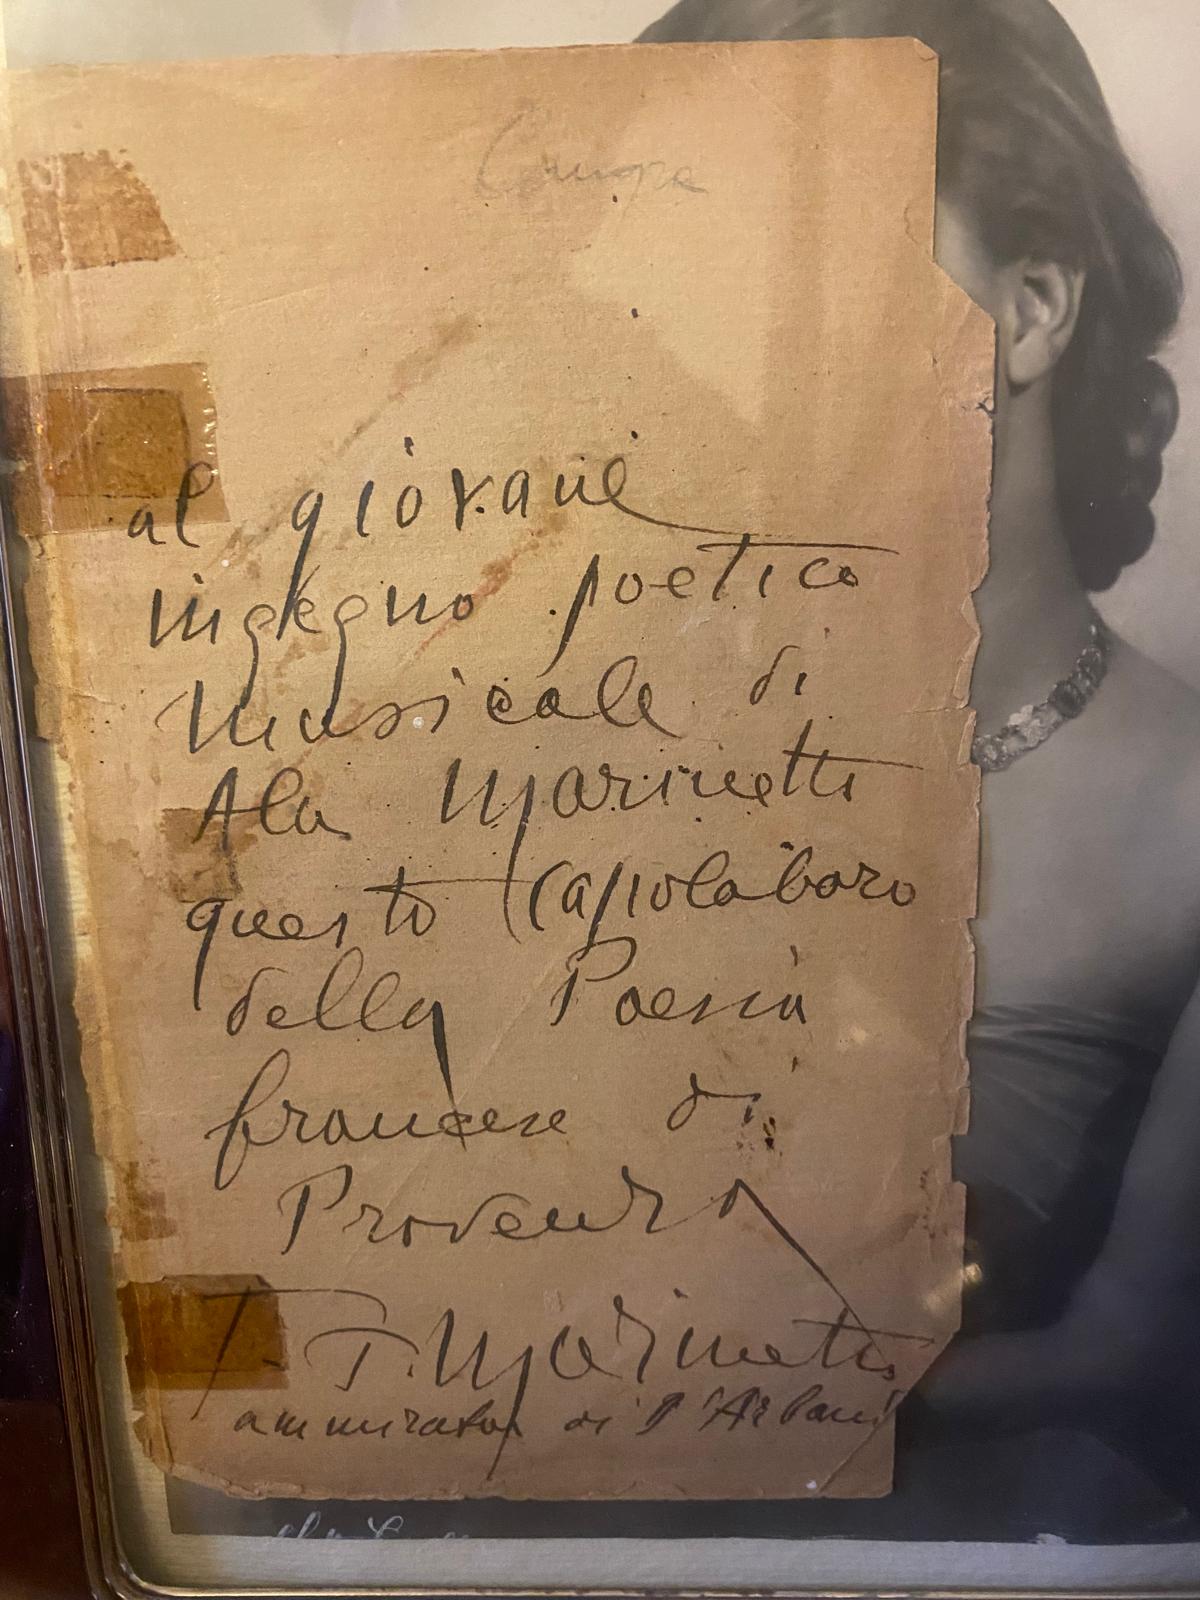 al giovane
ingegno poetico
musicale di
Ala Marinetti
questo Capolavoro
della Poesia
francese di
Provenza
F. T. Marinetti
ammirator di